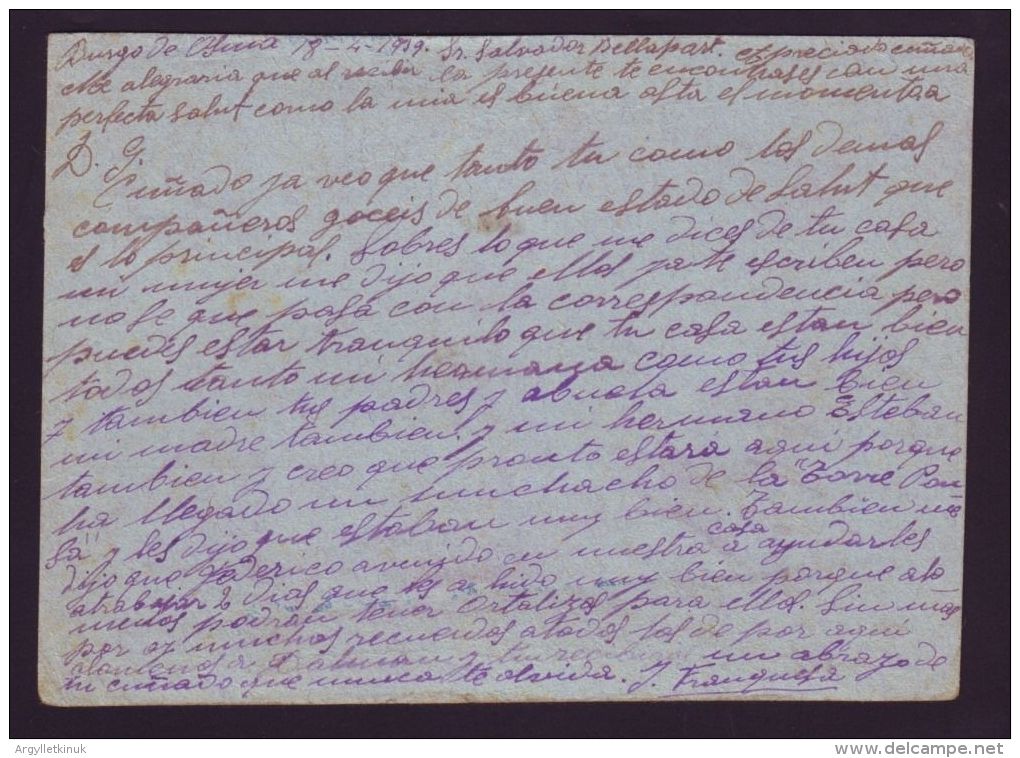 Burgo de Osma 18-4-1939. Sr. Salvador Bellapart. Apreciado cuñado
Me alegraria que al recibir la presente te encontrases con una
perfecta salut como la mia es buena asta el momento a
D. G.
Cuñado ja veo que tanto tu como los demas
compañeros goceis de buen estado de salut que
es lo principal. Sobres lo que me dices de tu casa
mi mujer me dijo que ellos ja te escriben pero
no se que pasa con la correspondencia pero
puedes estar tranquilo que tu casa estan bien
todos tanto mi hermana como tus hijos
y tambien tus padres y abuela estan bien
mi madre tambien. y mi hermano Esteban
tambien y creo que pronto estará aquí porque
ha llegado un muchacho de la "Torre Pon
sa" y les dijo que estaban muy bien. Tambien me
dijo que Federico a venido en nuestra casa a ayudarles
atrabajar 2 dias que les a hido muy bien porque alo
menos podran tener Ortalizas para ellos. Sin mas
por oy muchos recuerdos atodos los de por aqui
Dalmau y tu un abrazo de
tu cuñado que nunca te olvida. J. Franquesa
Argylletkinuk
www.delcampe.net